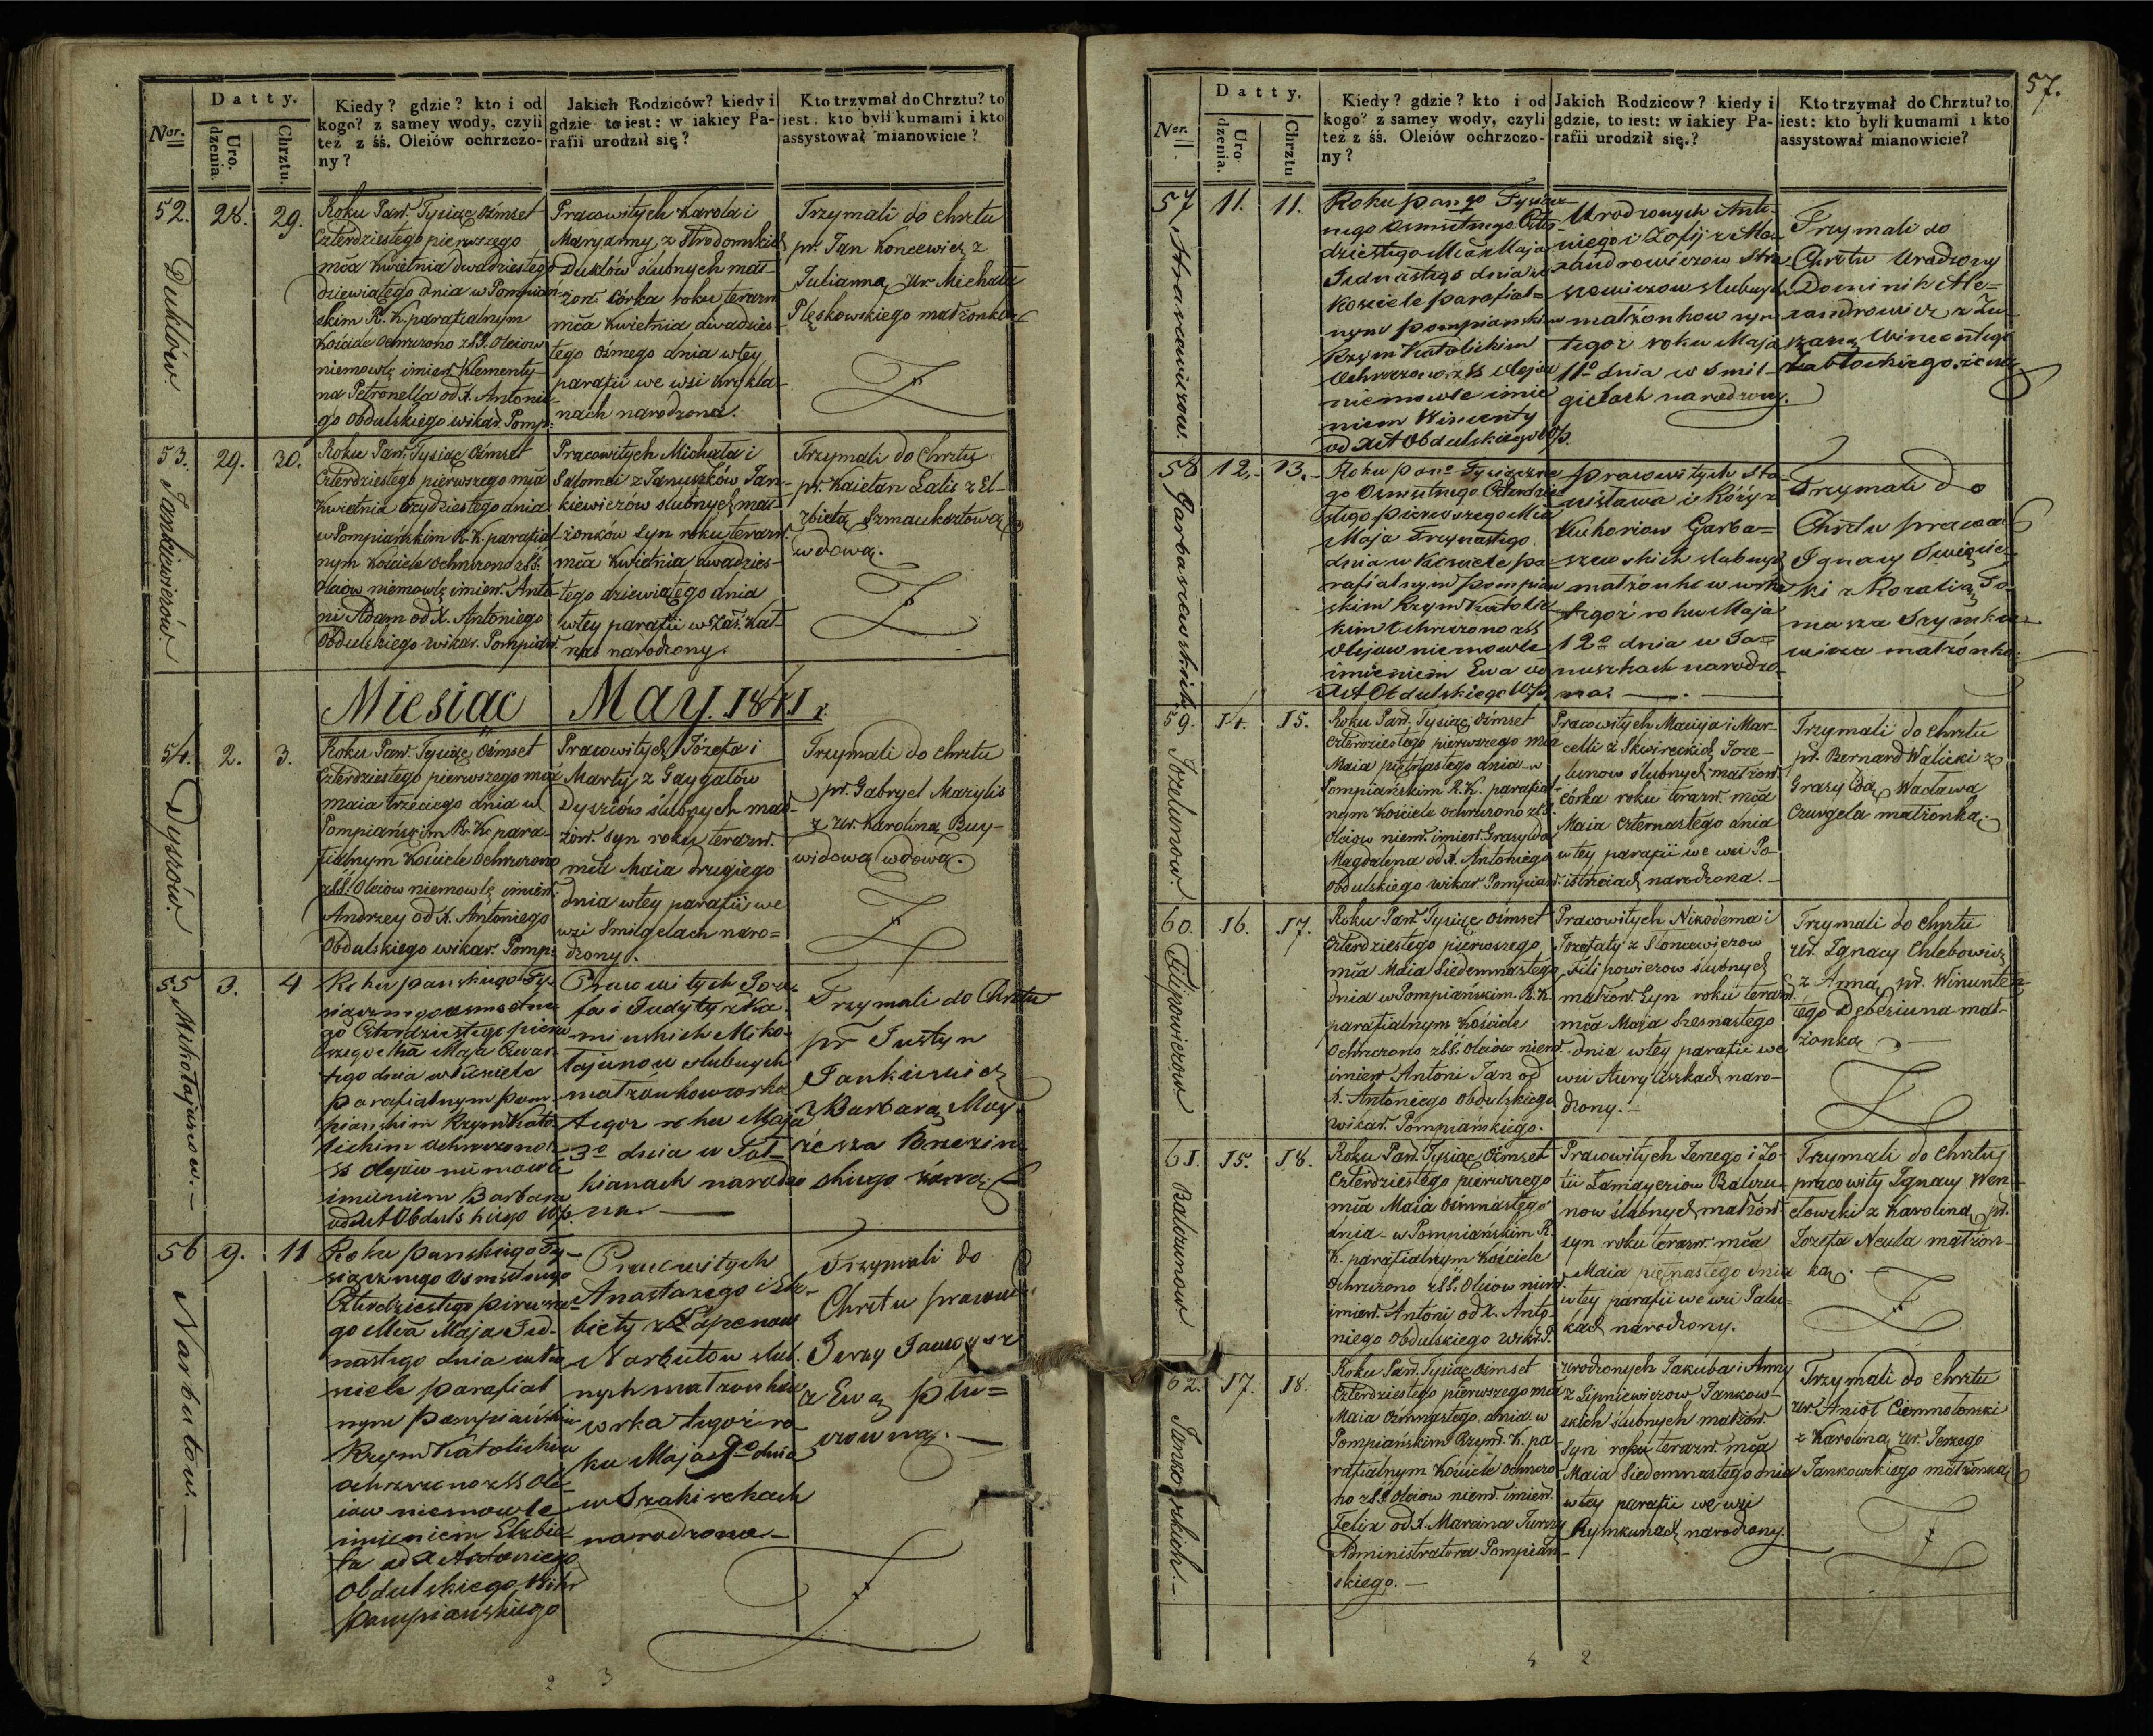 Datty.
Ner.
Uro-
dzenia.
Chrztu.
Kiedy? gdzie? kto i od
kogo? z samey wody, czyli
też z śś. Oleiów ochrzczo-
ny?
Jakich Rodziców? kiedy i
gdzie to iest: w iakiey Pa-
rafii urodził się?
Kto trzymał do Chrztu? to
iest: kto byli kumami i kto
assystował mianowicie?
52.
Duklów.
28.
29.
Roku Pań. Tysiąc Ośmset
Czterdziestego pierwszego
mca Kwietnia dwadziestego
dziewiątego dnia w Pompiań-
skim R. K. parafialnym
Kościele ochrzczono z SS. Oleiow
niemowlę imień. Klementy-
na Petronella od X. Antonie-
go Obdulskiego wikar. Pomp:
Pracowitych Karola i
Maryanny z Strodomskich
Duklów ślubnych mał-
żon. córka roku terazn
mca Kwietnia dwadzies-
tego ósmego dnia w tey
parafii we wsi Krykla-
nach narodzona.
Trzymali do chrztu
pr. Jan Koncewicz z
Julianną Ur. Michała
Pleskowskiego małżonką
53.
Jankiewiczów
29.
30.
Roku Pań. Tysiąc Ośmset
Czterdziestego pierwszego mca
Kwietnia trzydziestego dnia
w Pompiańskim R. K. parafial-
nym Kościele ochrzczono z SS.
Oleiów niemowlę imień. Anto-
ni Adam od X. Antoniego
Obdulskiego wikar. Pompiań.
Pracowitych Michała i
Salomei z Januszków Jan-
kiewiczów ślubnych mał-
żonków syn roku terazn.
mca Kwietnia dwadzies-
tego dziewiątego dnia
w tey parafii w Zaś. Kat-
nas narodzony.
Trzymali do Chrztu
pr. Kaietan Latis z El-
zbietą Szmauksztową
wdową.
Miesiac May. 1841 r.
54.
Dyszów.
2.
3.
Roku Pań. Tysiąc Ośmset
Czterdziestego pierwszego mca
maia trzeciego dnia w
Pompiańskim R. K. para-
fialnym Kościele ochrzczono
z SS. Oleiow niemowlę imień.
Andrzey od X. Antoniego
Obdulskiego wikar. Pomp:
Pracowitych Józefa i
Marty z Gaygalów
Dyszów ślubnych mał-
żon. syn roku terazn.
mca Maia drugiego
dnia w tey parafii we
wsi Smilgelach naro-
dzony.
Trzymali do chrztu
pr. Gabryel Mazylis
z Ur. Karoliną Buy-
widową wdową.
55
Mikołajunow.
3.
4
Roku pańskiego Ty-
siącznego osmsetne
go Czterdziestego pierw
szego Mca Maja Czwar
tego dnia w Kościele
parafialnym pom-
piańskim Rzym Kato
lickim ochrzczono z
SS Olejow niemowle
imieniem Barbara
od X A Obdulskiego W p.
Pracowitych Joze
fa i Judyty z Ka-
minskich Miko-
łajunow slubnych
małżonkow corka
tegoz roku Maja
3º dnia w Pot-
kianach narodzo
na.
Trzymali do Chrztu
pr Justyn
Jankiewicz
z Barbarą Moy-
żesza Brzezin
skiego żoną
56
Narbutow.
9.
11
Roku pańskiego Ty-
siącznego Osmsetnego
Czterdziestego pierwsze
go Mca Maja Jed-
nastego dnia w Ko
sciele parafial
nym pompiańskim
Rzym Katolickim
ochrzczono z SS Ole
iow niemowle
imieniem Elzbie
ta od X Antoniego
Obdulskiego Wikr
pompiańskiego
Pracowitych
Anastazego i Elz-
biety z Łapenow
Narbutow slub
nych małżonków
corka tegoż ro
ku Maja 9º dnia
w Szakiszkach
narodzona
Trzymali do
Chrztu pracow
Jerzy
z Ewą
57.
Datty.
Ner.
Uro-
dzenia.
Chrztu
Kiedy? gdzie? kto i od
kogo? z samey wody, czyli
też z śś. Oleiów ochrzczo-
ny?
Jakich Rodzicow? kiedy i
gdzie, to iest: w iakiey Pa-
rafii urodził się.?
Kto trzymał do Chrztu? to
iest: kto byli kumami i kto
assystował mianowicie?
57
11.
11.
Roku pango Tysiącz
nego osmsetnego Czter
dziestego Mca Maja
Jednastego dnia w
Kosciele parafial=
nym pompianskim
Rzym Katolickim
Ochrzczono z SS Olejow
niemowle imie
niem Wincenty
od X A Obdulskiego W p.
Urodzonych Anto-
niego i Zofij z Ale
xandrowiczow
slubnych
małżonkow syn
tegoz roku Maja
11º dnia w Smil-
gielach narodzony.
Trzymali do
Chrztu Urodzony
Dominik Ale=
xandrowicz z Łu-
Wincentego
Zabłockiego żoną
58
12.
13.
Roku pano Tysiączne
go Osmsetnego Czterdzie
stego pierwszego Mca
Maja Trzynastego
dnia w Kosciele pa-
rafialnym pompian
skim Rzym Katolic
kim Ochrzczono z SS
Olejow niemowle
imieniem Ewa od
X A Obdulskiego W p.
pracowitych Sta
nisława i Róży z
Kukoriow Garba=
szewskich slubnych
małżonkow corka
tegoż roku Maja
12º dnia w Ja=
nuszkach narodzo
na.
Trzymali do
Chrztu pracow
Ignacy Swięcic
ki z Rozalią To-
masza Szymkie-
wicza małżonką.
59.
Jozelunow.
14.
15.
Roku Pań. Tysiąc Ośmset
Czterdziestego pierwszego mca
Maia piętnastego dnia w
Pompiańskim R. K. parafial-
nym Kościele ochrzczono z SS.
Oleiow niem. imień. Grasylda
Magdalena od X. Antoniego
Obdulskiego wikar. Pompiań.
Pracowitych Macieja i Mar-
celli z Skwireckich Joze-
lunow ślubnych małżon.
córka roku terazn. mca
Maia czternastego dnia
w tey parafii we wsi Po-
istrzciach narodzona.
Trzymali do chrztu
pr. Bernard Walicki z
Grasyldą Wacława
Czurgela małżonką.
60.
Filipowiczow.
16.
17.
Roku Pań. Tysiąc Ośmset
Czterdziestego pierwszego
mca Maia Siedemnastego
dnia w Pompiańskim R. K.
parafialnym Kościele
Ochrzczono z SS. Oleiow niem.
imień Antoni Jan od
X. Antoniego Obdulskiego
wikar. Pompiańskiego.
Pracowitych Nikodema i
Jozefaty z Stoncewiczow
Filipowiczow ślubnych
małżon. Syn roku terazn.
mca Maja Szesnastego
dnia w tey parafii we
wsi Auryliszkach naro-
dzony.
Trzymali do chrztu
Ur. Ignacy Chlebowicz
z Anną pr. Wincen-
tego Debesiuna mał-
żonką
61.
Balczunow.
15.
18.
Roku Pań. Tysiąc Ośmset
Czterdziestego pierwszego
mca Maia Ośmnastego
dnia w Pompiańskim R.
K. parafialnym Kościele
Ochrzczono z SS. Oleiow niem.
imień. Antoni od X. Anto-
niego Obdulskiego Wikr. P.
Pracowitych Jerzego i Zo-
fii Balczu-
now ślubnych małżon.
syn roku terazn. mca
Maia piętnastego dnia
w tey parafii we wsi Patu-
kach narodzony.
Trzymali do chrztu
pracowity Ignacy Wen-
cłowski z Karoliną pr.
Jozefa Neula małżon-
ką.
62.
Jankowskich.
17.
18.
Roku Pań. Tysiąc Ośmset
Czterdziestego pierwszego mca
Maia Ośmnastego dnia w
Pompiańskim Rzym. K. pa-
rafialnym Kościele ochrzczo-
no z SS. Oleiow niem. imień.
Felix od X. Marcina
Administratora Pompiań-
skiego.
Urodzonych Jakuba i Anny
z Lipniewiczow Jankow-
skich ślubnych małżon.
Syn roku terazn. mca
Maia Siedemnastego dnia
w tey parafii we wsi
Rymkunach narodzony.
Trzymali do chrztu
Ur. Anioł Ciemnołonski
z Karoliną Ur. Jerzego
Jankowskiego małżonką